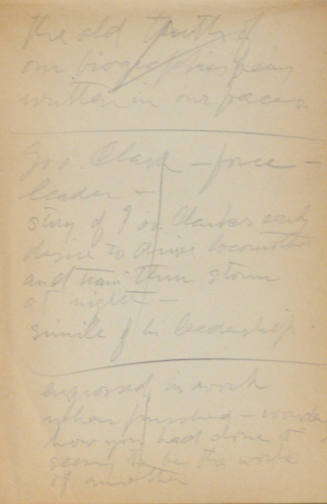 The old truth of
our biographies being
written in our faces
Gov Clark – force –
leader –
story of Gov Clark's early
desire to drive locomotive
and train thru storm
at night –
simile of his leadership
engrossed in work
when finished – wonder
how you had done it –
seems to be the work
of another